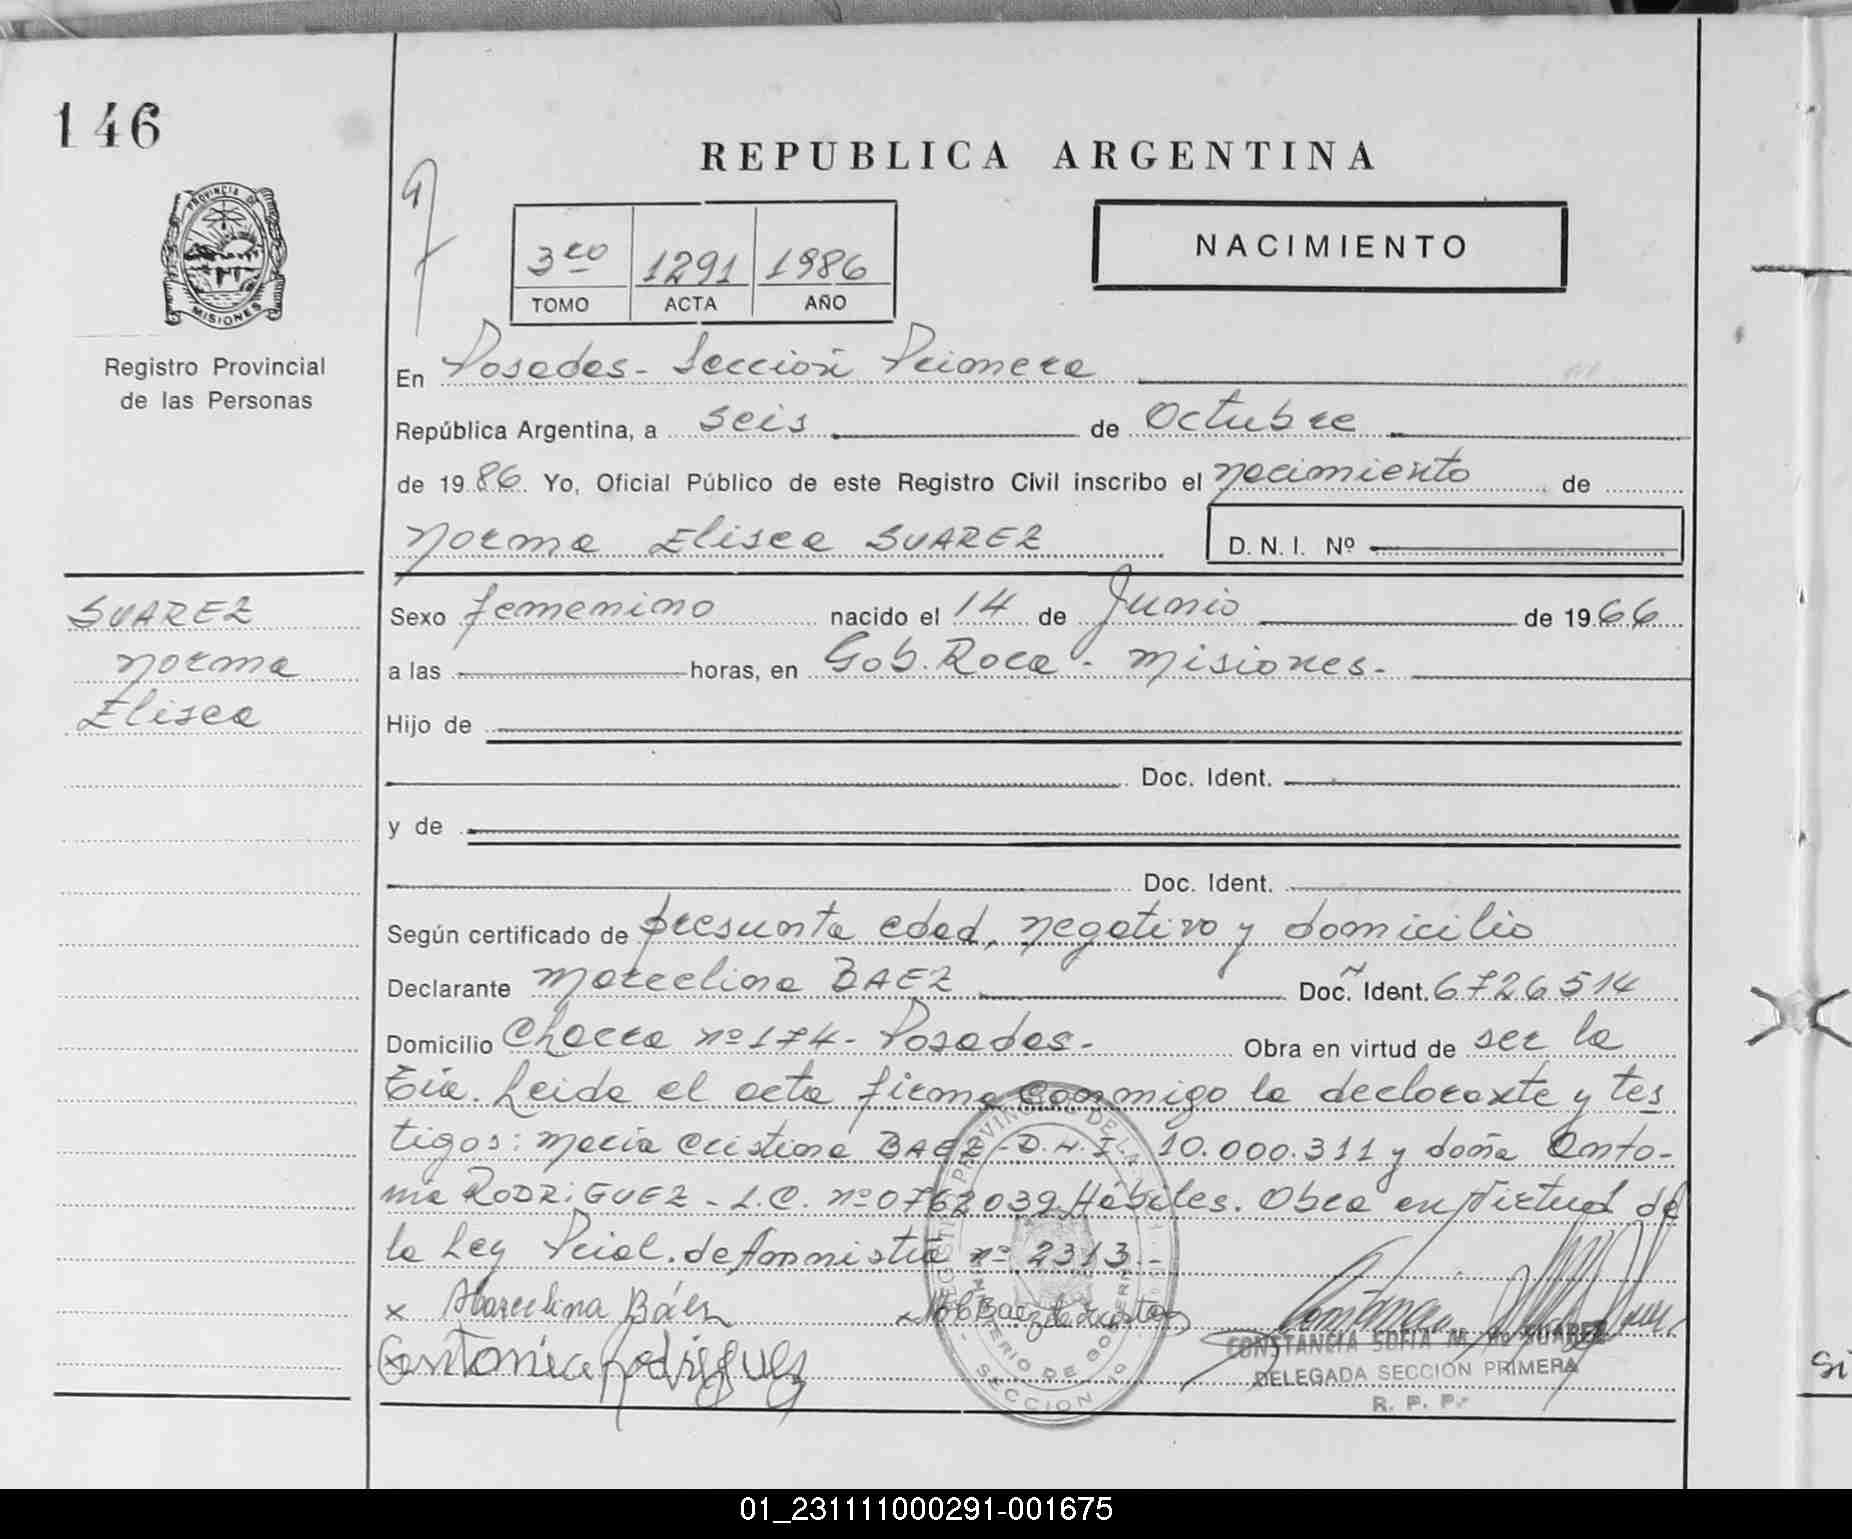 146
PROVINCIA DE
MISIONES
Registro Provincial
de las Personas
SUAREZ
Norma
Elisea
REPUBLICA ARGENTINA
NACIMIENTO
3ro 1291 1986
TOMO ACTA AÑO
En Posadas - Sección Primera
República Argentina, a seis de Octubre
de 1986. Yo, Oficial Público de este Registro Civil inscribo el nacimiento de
Norma Elisea SUAREZ D. N. I. Nº
Sexo femenino nacido el 14 de Junio de 1966
a las horas, en Gob. Roca - Misiones -
Hijo de
Doc. Ident.
y de
Doc. Ident.
Según certificado de presunta edad, negativo y domicilio
Declarante Marcelina BAEZ Doc. Ident. 6726514
Domicilio Chacra nº 174 - Posadas - Obra en virtud de ser la
tía. Leida el acta firma conmigo la declarante y tes
tigos: María Cristina BAEZ - D.N.I. 10.000.311 y doña Anto-
nia RODRIGUEZ - L.C. nº 0762039 Hábiles. Obra en Virtud de
la Ley Pcial. de Amnistía nº 2313 -
x Marcelina Báez x
Antonia rodriguez
CONSTANCIA SOFIA M. de SUAREZ
DELEGADA SECCION PRIMERA
R. P. P.
SECCION 1a
01_231111000291-001675